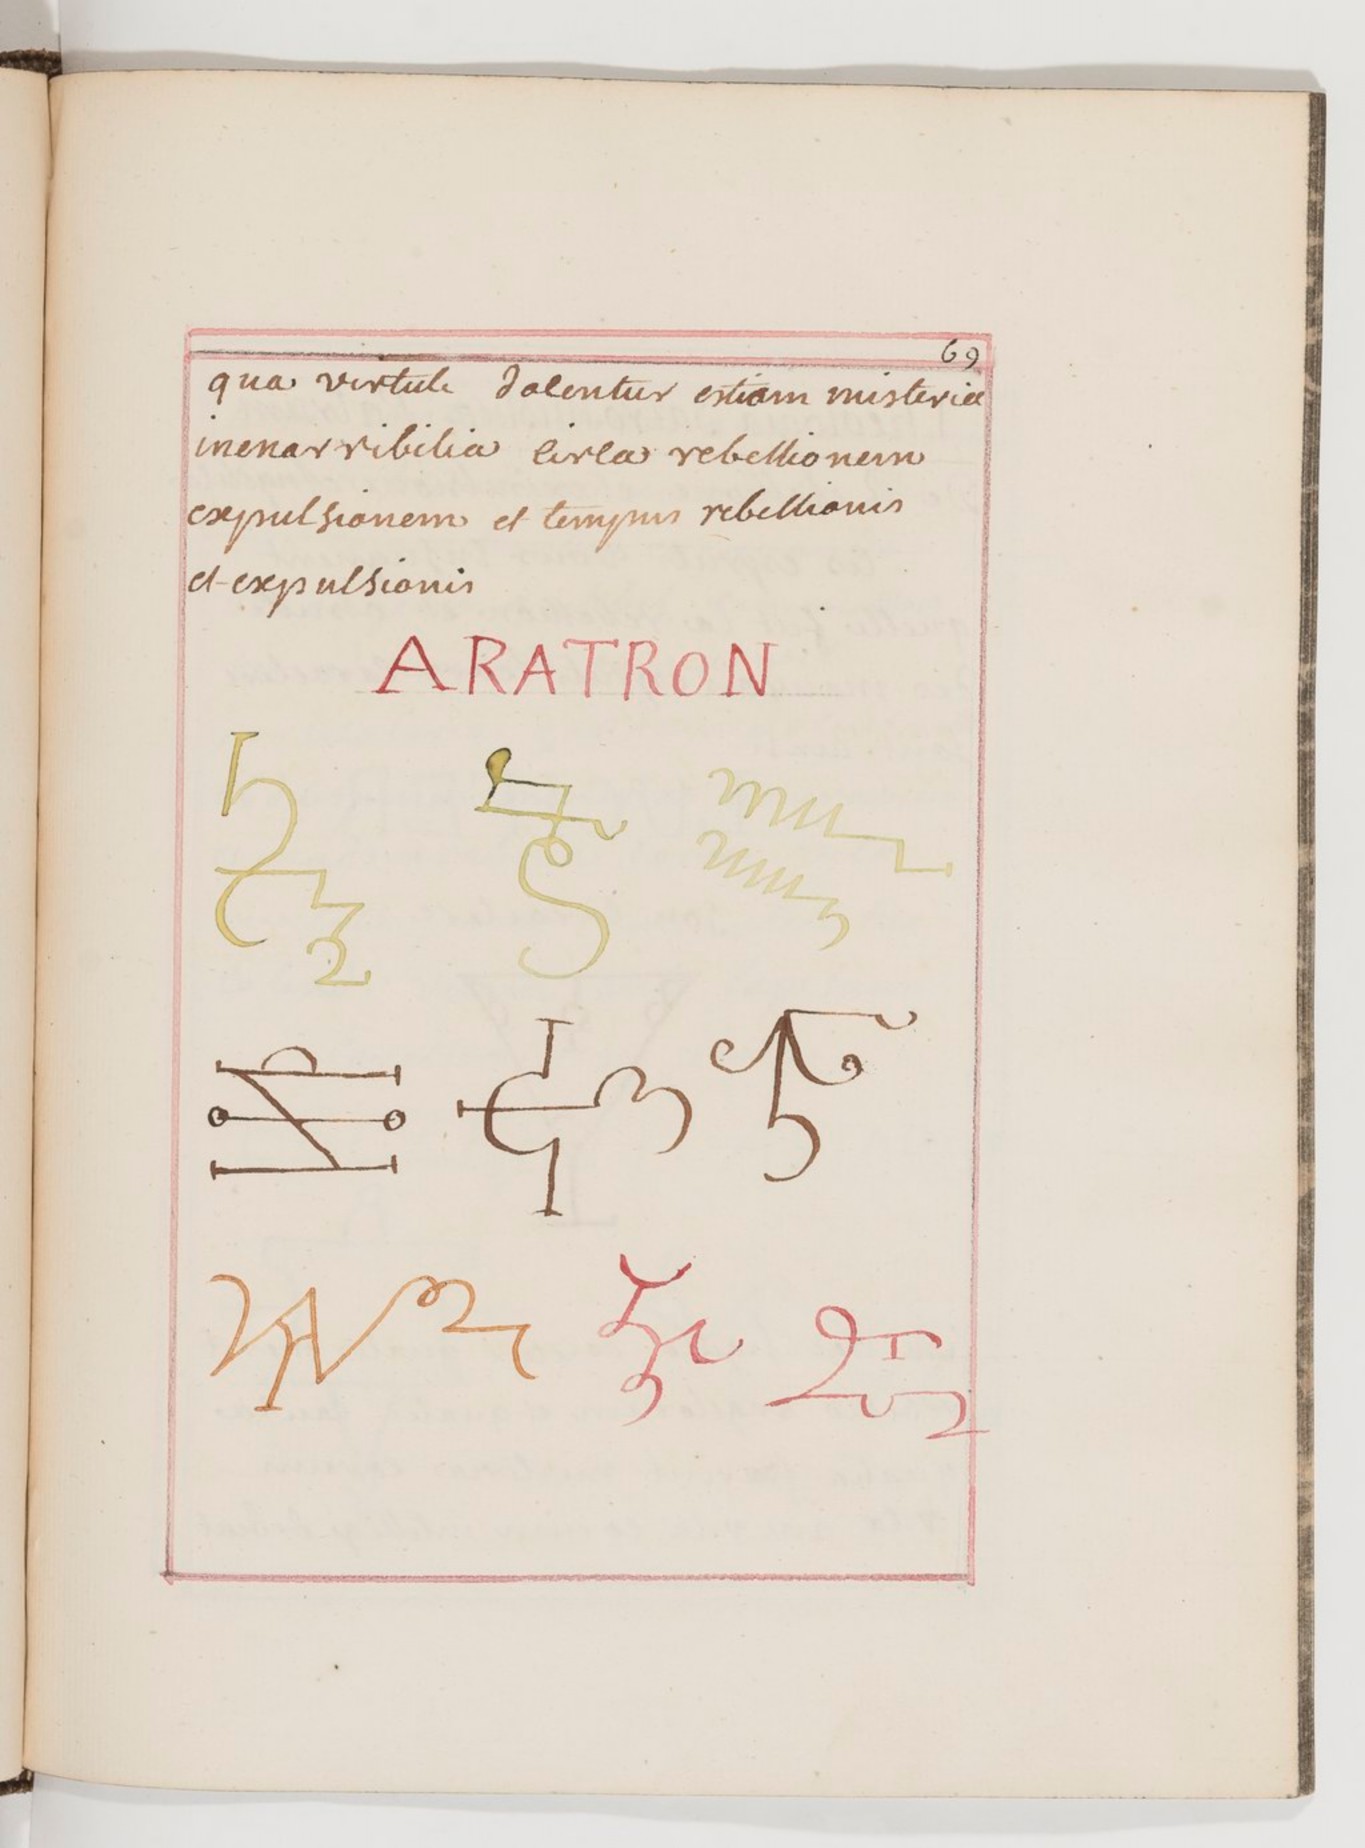 69
qua virtute dolentur estiam misteria
inenarribilia circa rebellionem
expulsionem et tempus rebellionis
et expulsionis
ARATRON